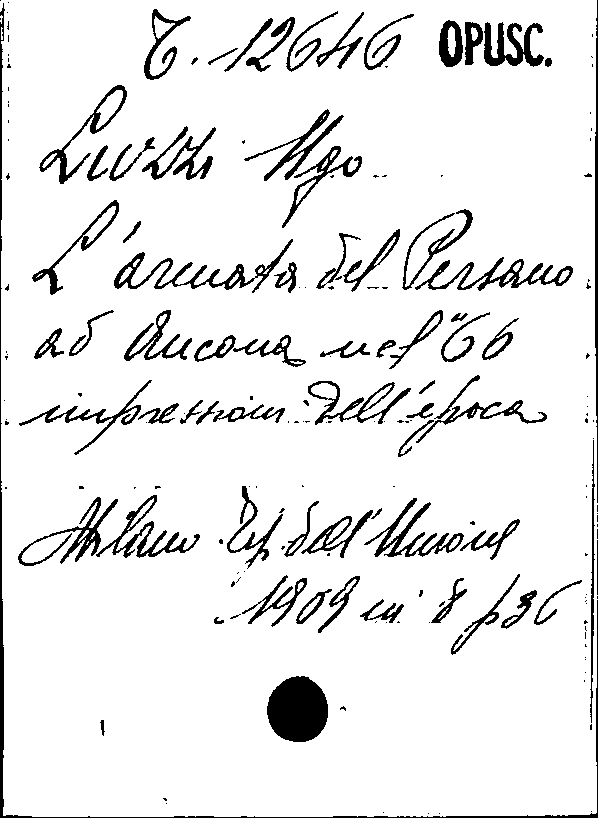 T. 12646 OPUSC.
Luzzi Ugo
L'armata del Persano
ad Ancona nel "66
impressioni dell'época
Milano Tip dell'Unione
1909 in 8 p36